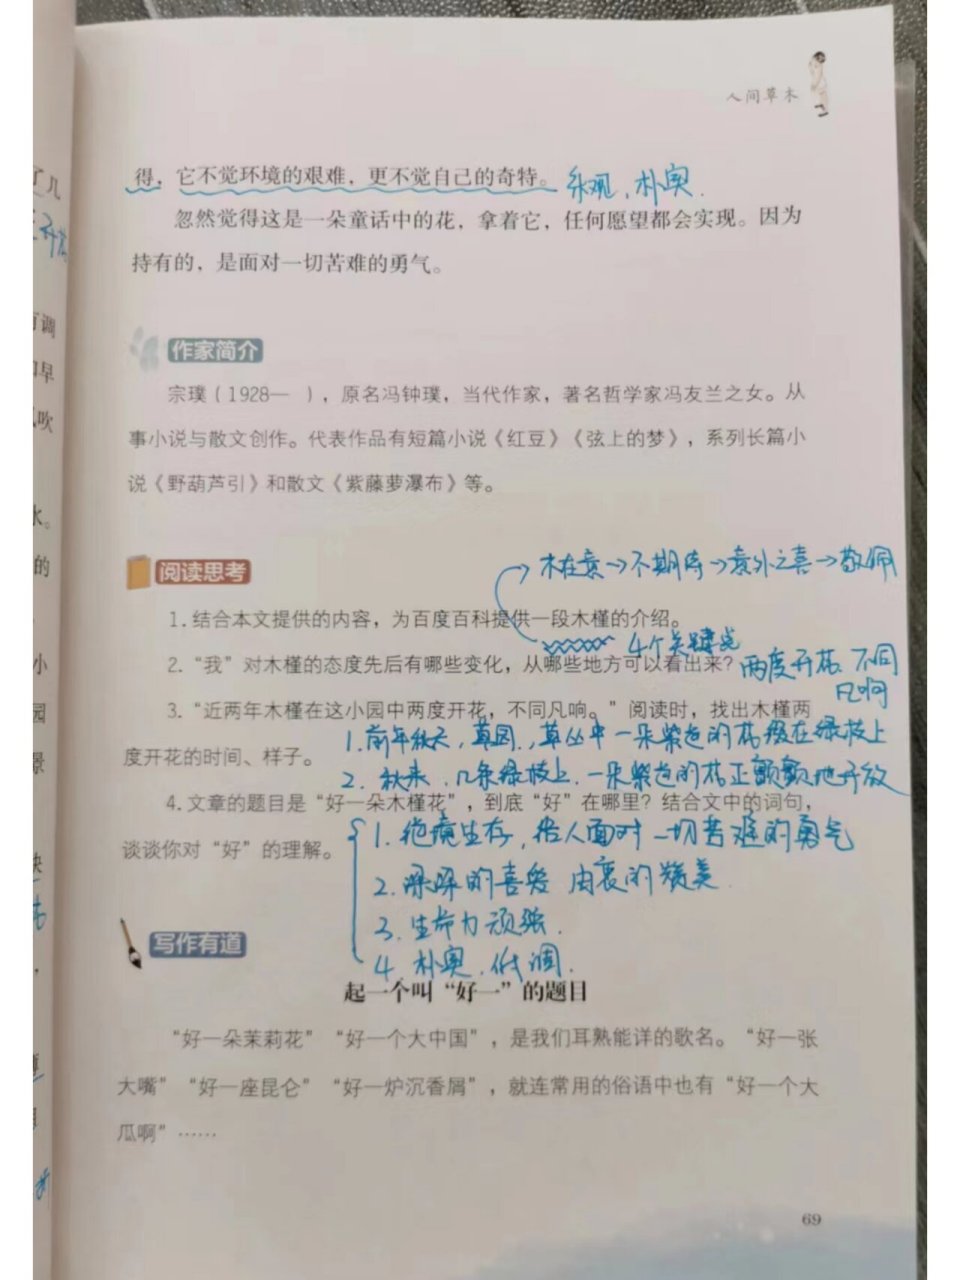 人间草木
得，它不觉环境的艰难，更不觉自己的奇特。 乐观、朴实.
忽然觉得这是一朵童话中的花，拿着它，任何愿望都会实现。因为
持有的，是面对一切苦难的勇气。
作家简介
宗璞（1928— ），原名冯钟璞，当代作家，著名哲学家冯友兰之女。从
事小说与散文创作。代表作品有短篇小说《红豆》《弦上的梦》，系列长篇小
说《野葫芦引》和散文《紫藤萝瀑布》等。
阅读思考
不在意→不期待→意外之喜→敬佩
1. 结合本文提供的内容，为百度百科提供一段木槿的介绍。
4个关键点
2. “我”对木槿的态度先后有哪些变化，从哪些地方可以看出来？
两度开花 不同
凡响
3. “近两年木槿在这小园中两度开花，不同凡响。”阅读时，找出木槿两
度开花的时间、样子。
1. 前年秋天，草园，草丛中一朵紫色的花缀在绿枝上
2. 秋来，几条绿枝上，一朵紫色的花正颤颤地开放
4. 文章的题目是“好一朵木槿花”，到底“好”在哪里？结合文中的词句，
谈谈你对“好”的理解。
1. 绝境生存，给人面对一切苦难的勇气
2. 深深的喜爱 由衷的赞美.
3. 生命力顽强.
4. 朴实、低调.
写作有道
起一个叫“好一”的题目
“好一朵茉莉花”“好一个大中国”，是我们耳熟能详的歌名。“好一张
大嘴”“好一座昆仑”“好一炉沉香屑”，就连常用的俗语中也有“好一个大
瓜啊”……
69
了几
开花
调
早
吹
水。
的
小
园
景